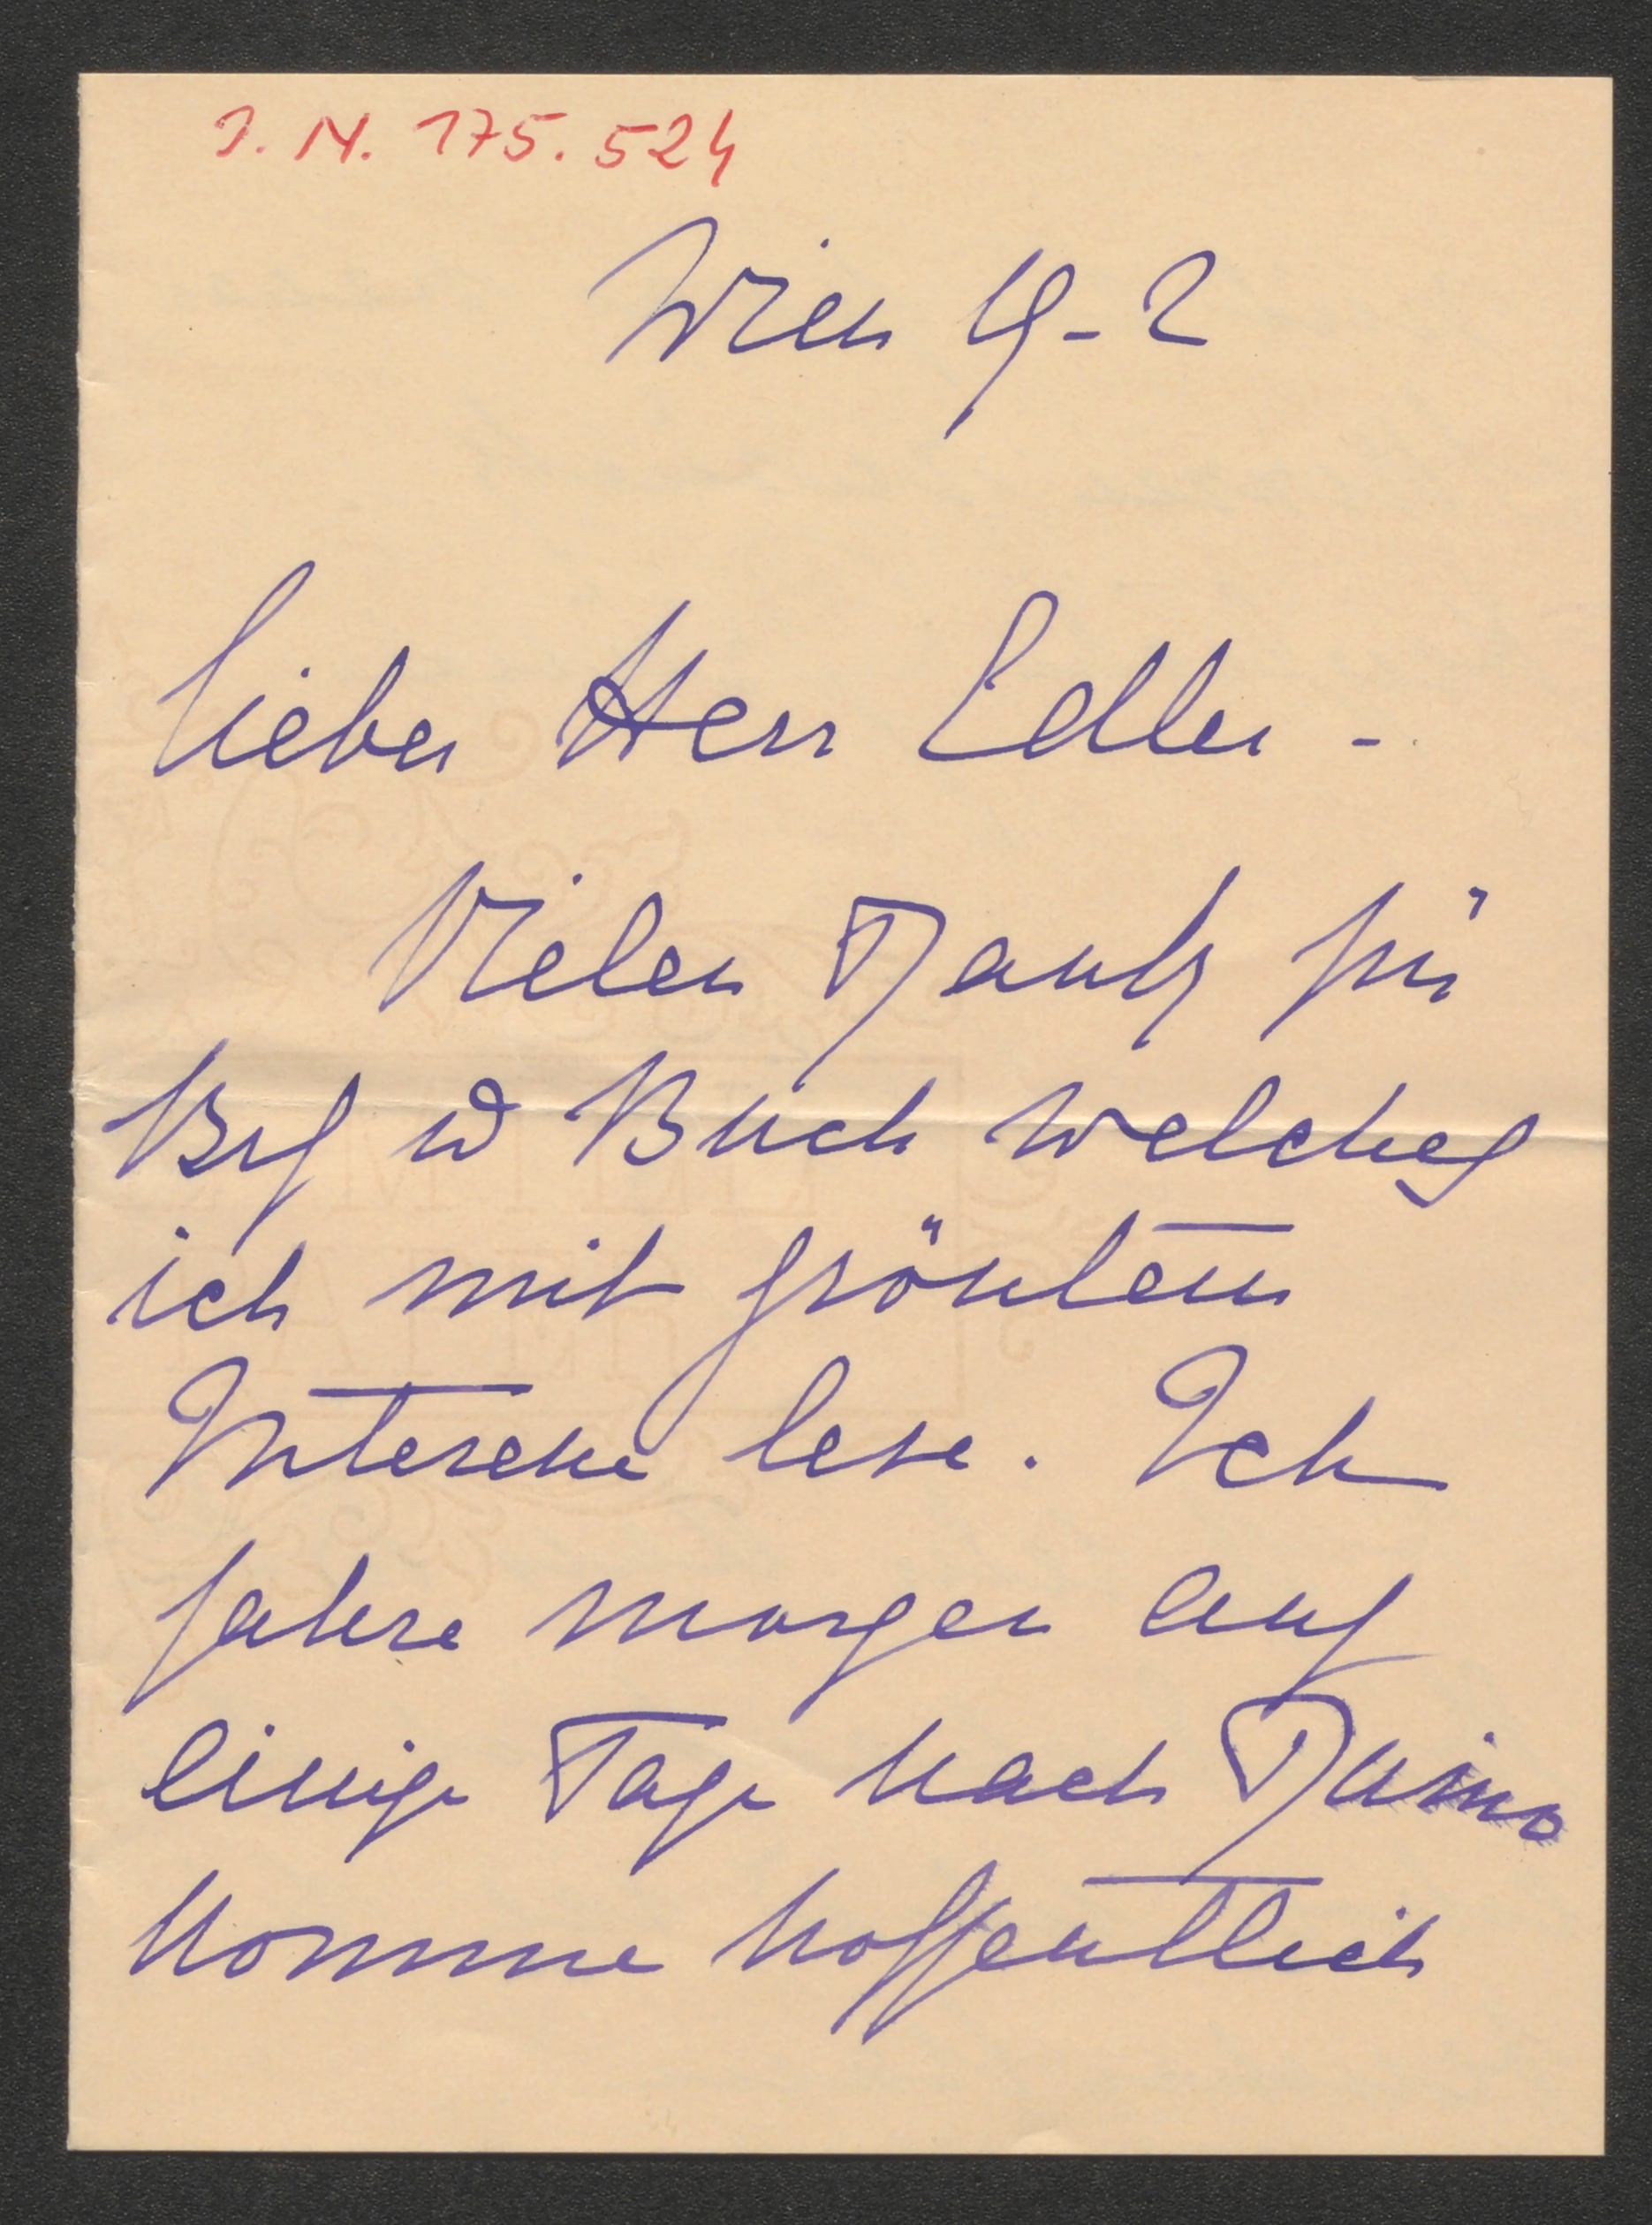 I. N. 175.524
Wien 19-2
Lieber Herr Edler -
Vielen Dank für
Brf u Buch welches
ich mit größtem
Interesse lese. Ich
fahre morgen auf
einige Tage nach Duino
komme hoffentlich